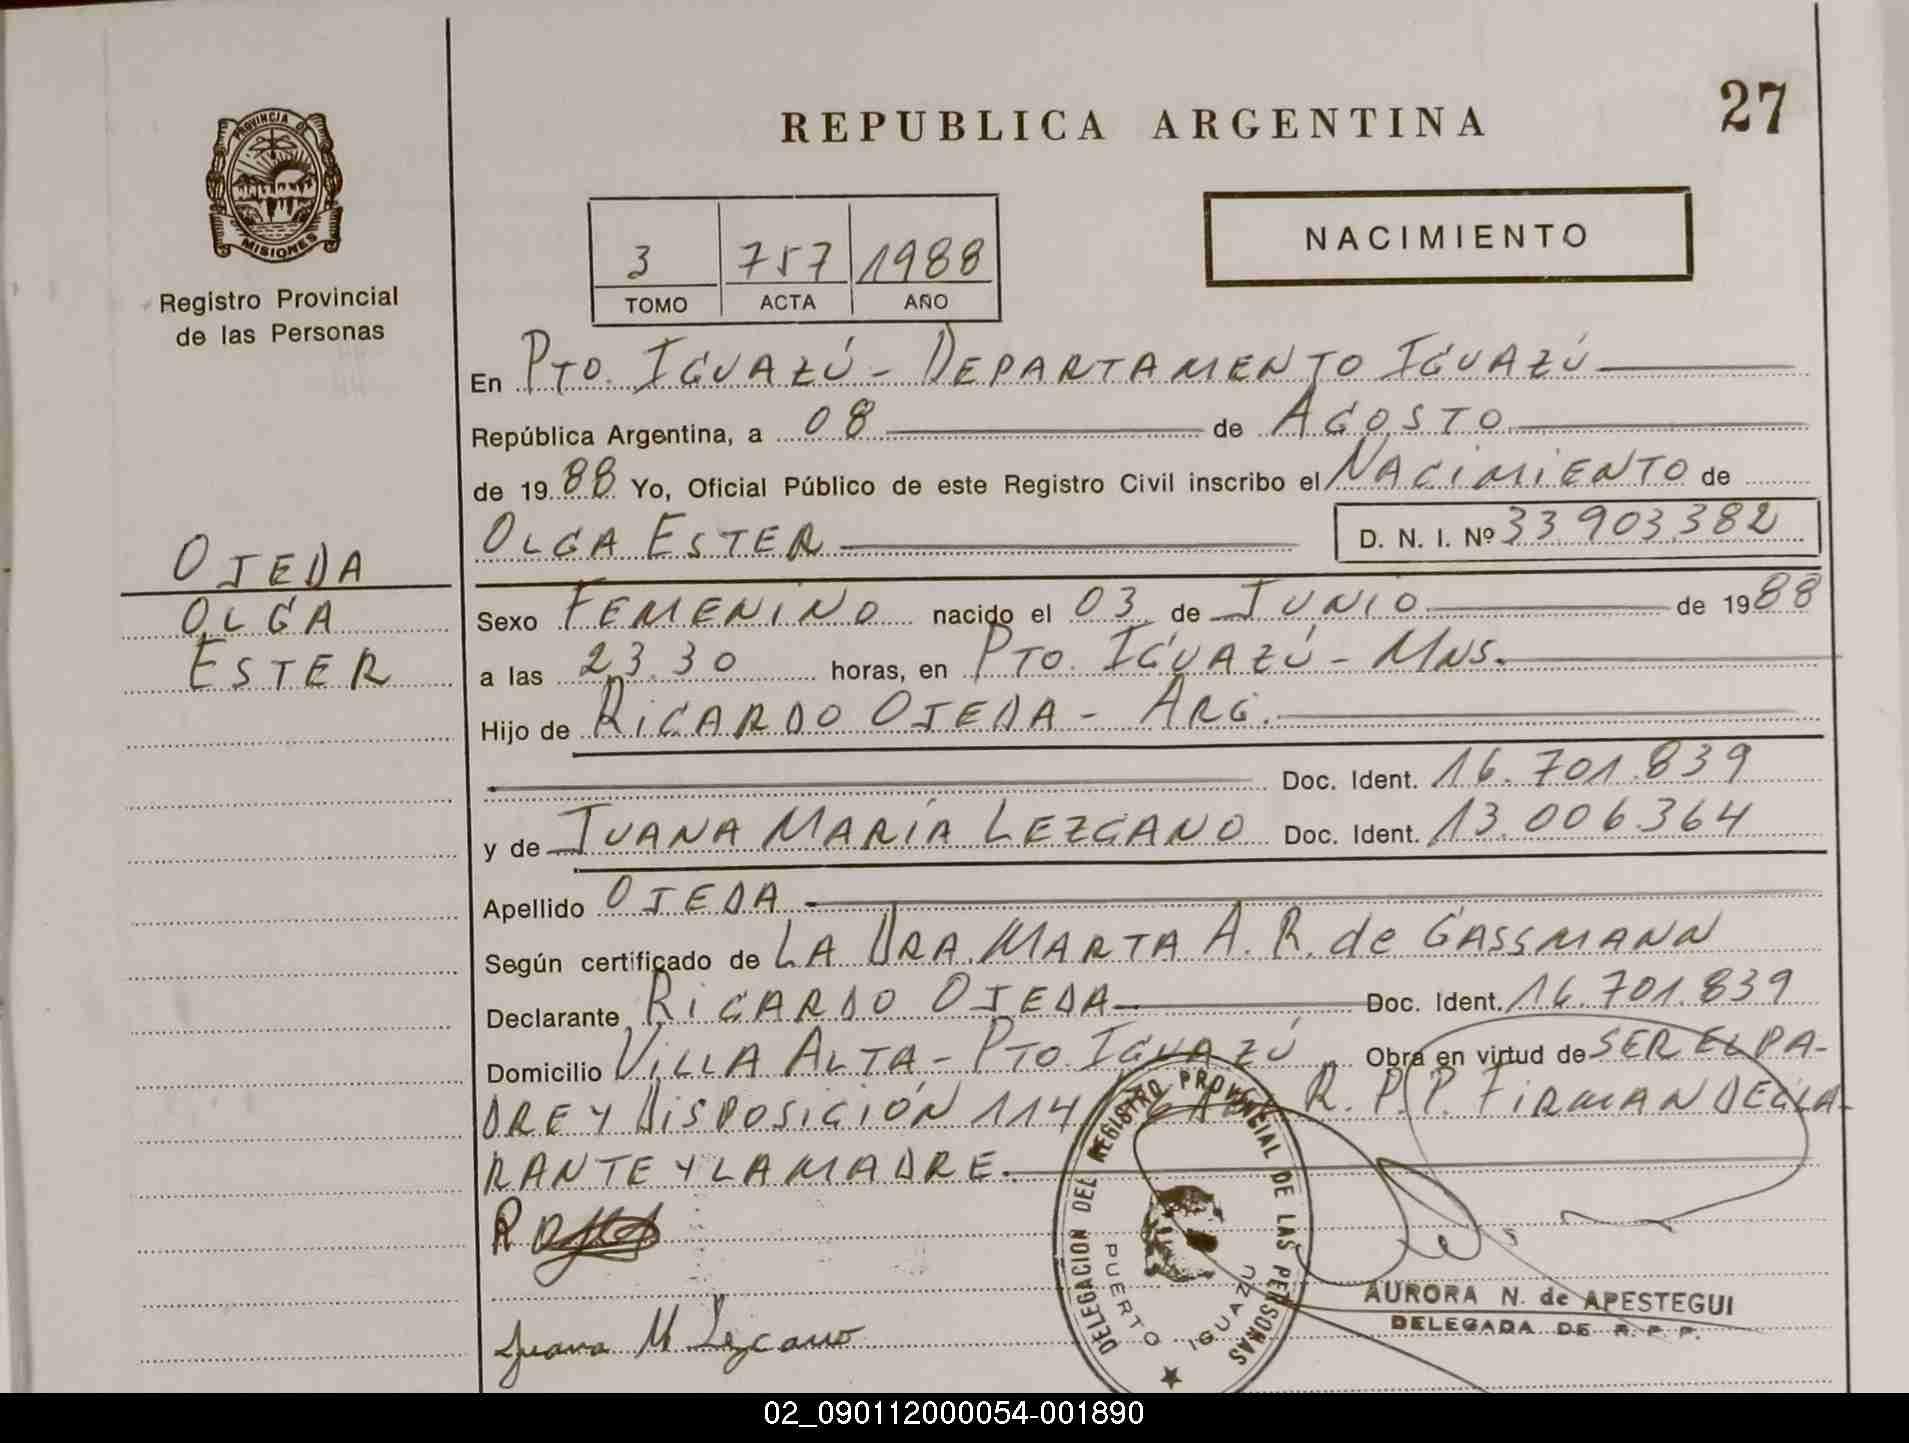 27
REPUBLICA ARGENTINA
PROVINCIA DE
MISIONES
NACIMIENTO
Registro Provincial
de las Personas
3 757 1988
TOMO ACTA AÑO
En PTO. IGUAZÚ - DEPARTAMENTO IGUAZÚ
República Argentina, a 08 de AGOSTO
de 1988 Yo, Oficial Público de este Registro Civil inscribo el NACIMIENTO de
OLGA ESTER D. N. I. Nº 33.903.382
OJEDA
OLGA
ESTER
Sexo FEMENINO nacido el 03 de JUNIO de 1988
a las 23.30 horas, en PTO. IGUAZÚ - MNS.
Hijo de RICARDO OJEDA - ARG.
Doc. Ident. 16.701.839
y de JUANA MARÍA LEZCANO Doc. Ident. 13.006.364
Apellido OJEDA
Según certificado de LA DRA. MARTA A. R. de GASSMANN
Declarante RICARDO OJEDA Doc. Ident. 16.701.839
Domicilio VILLA ALTA - PTO. IGUAZÚ Obra en virtud de SER EL PA-
DRE Y DISPOSICIÓN 114 R. P. P. FIRMAN DECLA-
RANTE Y LA MADRE.
Juana M Lezcano
DELEGACION DEL REGISTRO PROVINCIAL DE LAS PERSONAS
PUERTO IGUAZU
AURORA N. de APESTEGUI
DELEGADA DE R. P. P.
02_090112000054-001890